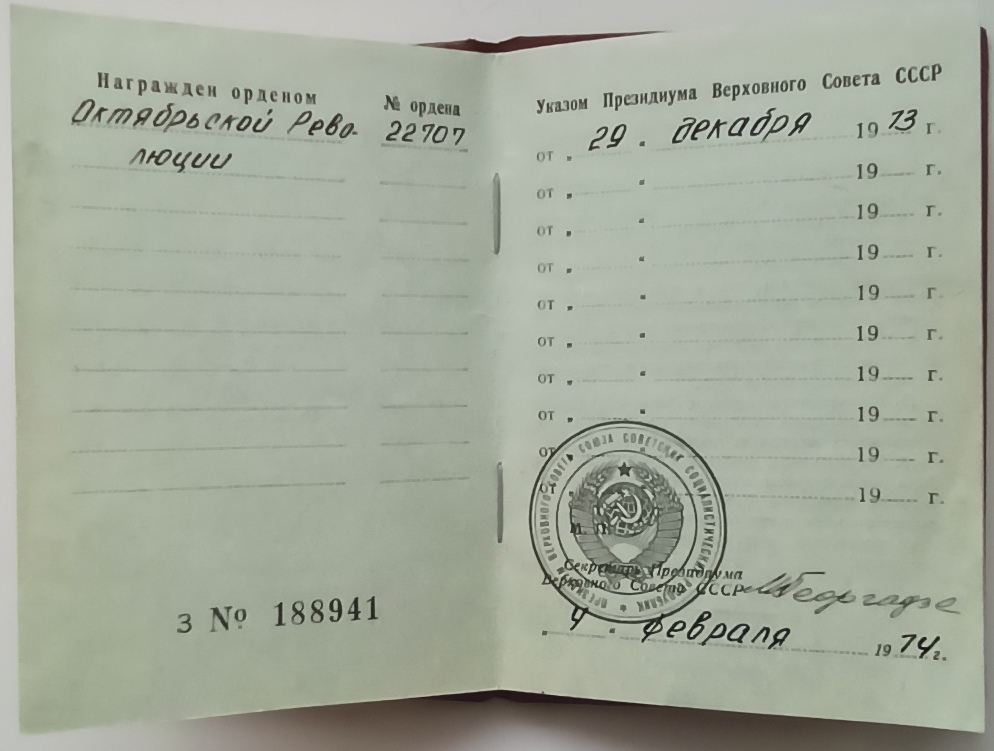 Награжден орденом
№ ордена
Октябрьской Рево-
люции
22707
З № 188941
Указом Президиума Верховного Совета СССР
от „ 29 “ декабря 1973 г.
от „ “ 19 г.
от „ “ 19 г.
от „ “ 19 г.
от „ “ 19 г.
от „ “ 19 г.
от „ “ 19 г.
от „ “ 19 г.
от „ “ 19 г.
от „ “ 19 г.
ПРЕЗИДИУМ ВЕРХОВНОГО СОВЕТА СОЮЗА СОВЕТСКИХ СОЦИАЛИСТИЧЕСКИХ РЕСПУБЛИК
М. П.
Секретарь Президиума
Верховного Совета СССР МГеоргадзе
„ 4 “ февраля 1974 г.